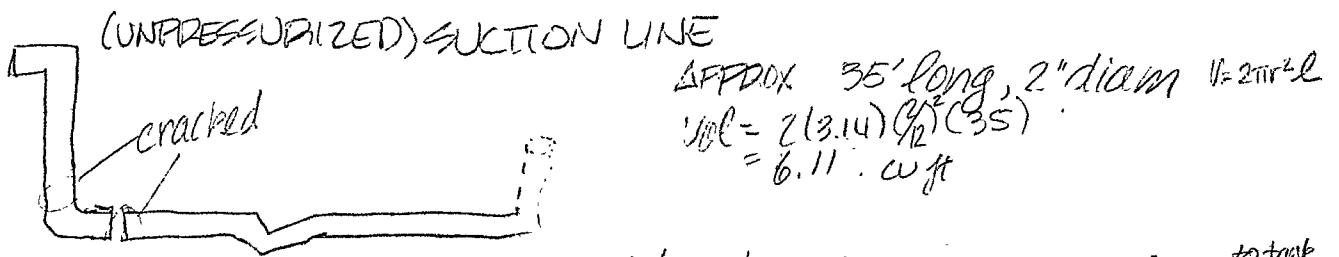 (UNPRESSURIZED) SUCTION LINE
APPROX 35' long, 2" diam V=2πr²l
vol = 2(3.14)(2/12)²(35)
= 6.11 cu ft
cracked
to tank